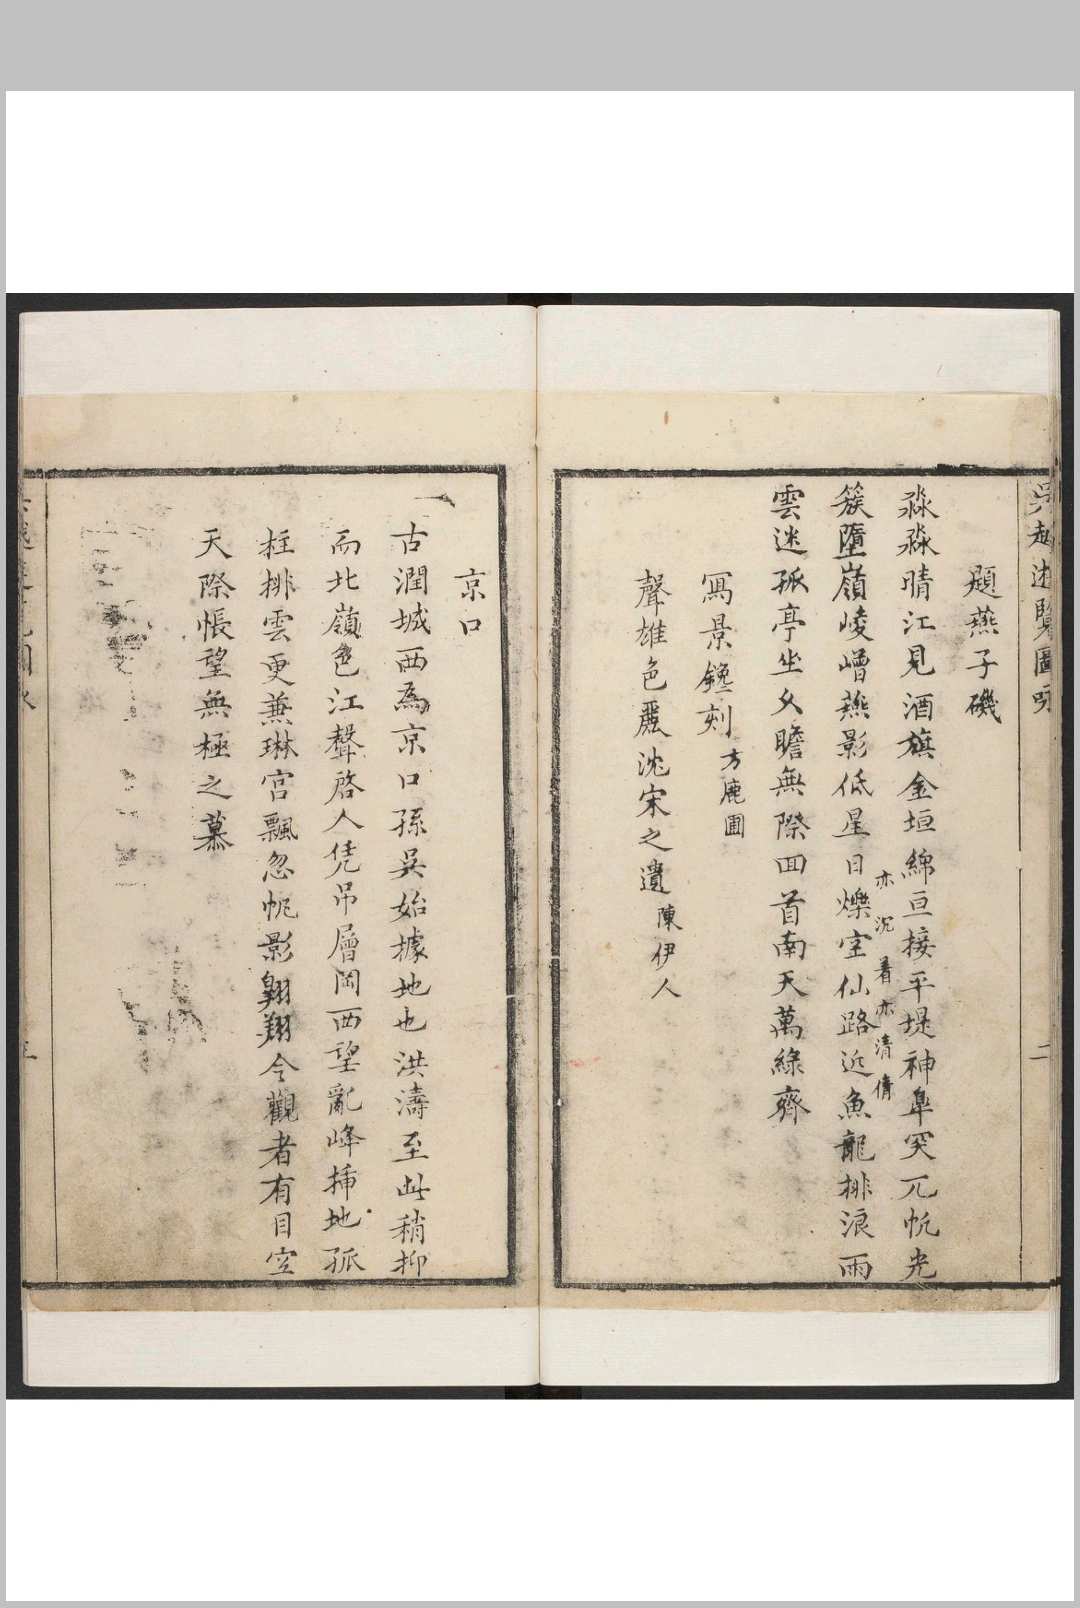 吳越遊覽圖詠
二
題燕子磯
淼淼晴江見酒旗金垣綿亘接平堤神皐突兀帆光
簇墮嶺崚嶒燕影低星日爍空仙路近魚龍排浪雨
亦沉着亦清倩
雲迷孤亭坐久瞻無際回首南天萬綠齊
寫景鑱刻方鹿圃
聲雄色麗沈宋之遺陳伊人
京口
古潤城西為京口孫吳始據地也洪濤至此稍抑
而北嶺色江聲啓人凭吊層岡西望亂峰揷地孤
柱排雲更兼琳宮飄忽帆影翱翔令觀者有目空
天際悵望無極之慕